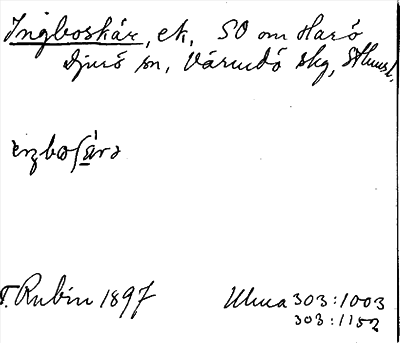 Ingboskär, ek, SO om Harö
Djurö sn, Värmdö skg, Sthmsl.
T. Rubin 1897 Ulma 303:1003
303:1152